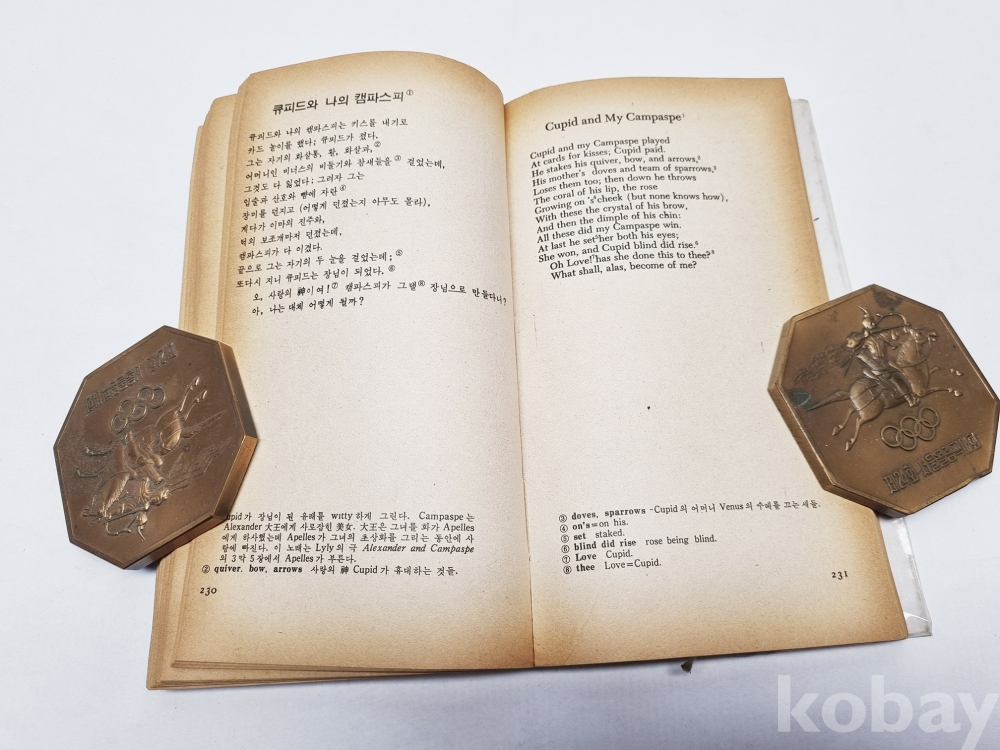 큐피드와 나의 캠파스피①
큐피드와 나의 캠파스피는 키스를 내기로
카드 놀이를 했다; 큐피드가 졌다.
그는 자기의 화살통, 활, 화살과,②
어머니인 비너스의 비둘기와 참새들을③ 걸었는데,
그것도 다 잃었다; 그러자 그는
입술과 산호와 뺨에 자란④
장미를 던지고 (어떻게 던졌는지 아무도 몰라),
게다가 이마의 진주와,
턱의 보조개마저 던졌는데,
캠파스피가 다 이겼다.
끝으로 그는 자기의 두 눈을 걸었는데;⑤
또다시 지니 큐피드는 장님이 되었다.⑥
오, 사랑의 神이여!⑦ 캠파스피가 그댈⑧ 장님으로 만들다니?
아, 나는 대체 어떻게 될까?
upid가 장님이 된 유래를 witty하게 그린다. Campaspe는
Alexander 大王에게 사로잡힌 美女. 大王은 그녀를 화가 Apelles
에게 하사했는데 Apelles가 그녀의 초상화를 그리는 동안에 사
랑에 빠진다. 이 노래는 Lyly의 극 Alexander and Campaspe
의 3막 5장에서 Apelles가 부른다.
② quiver, bow, arrows 사랑의 神 Cupid가 휴대하는 것들.
230
Cupid and My Campaspe¹
Cupid and my Campaspe played
At cards for kisses; Cupid paid.
He stakes his quiver, bow, and arrows,²
His mother's doves and team of sparrows,³
Loses them too; then down he throws
The coral of his lip, the rose
Growing on 's⁴cheek (but none knows how),
With these the crystal of his brow,
And then the dimple of his chin:
All these did my Campaspe win.
At last he set⁵her both his eyes;
She won, and Cupid blind did rise.⁶
Oh Love!⁷has she done this to thee?⁸
What shall, alas, become of me?
③ doves, sparrows -Cupid의 어머니 Venus의 수레를 끄는 새들.
④ on's=on his.
⑤ set staked.
⑥ blind did rise rose being blind.
⑦ Love Cupid.
⑧ thee Love=Cupid.
231
kobay